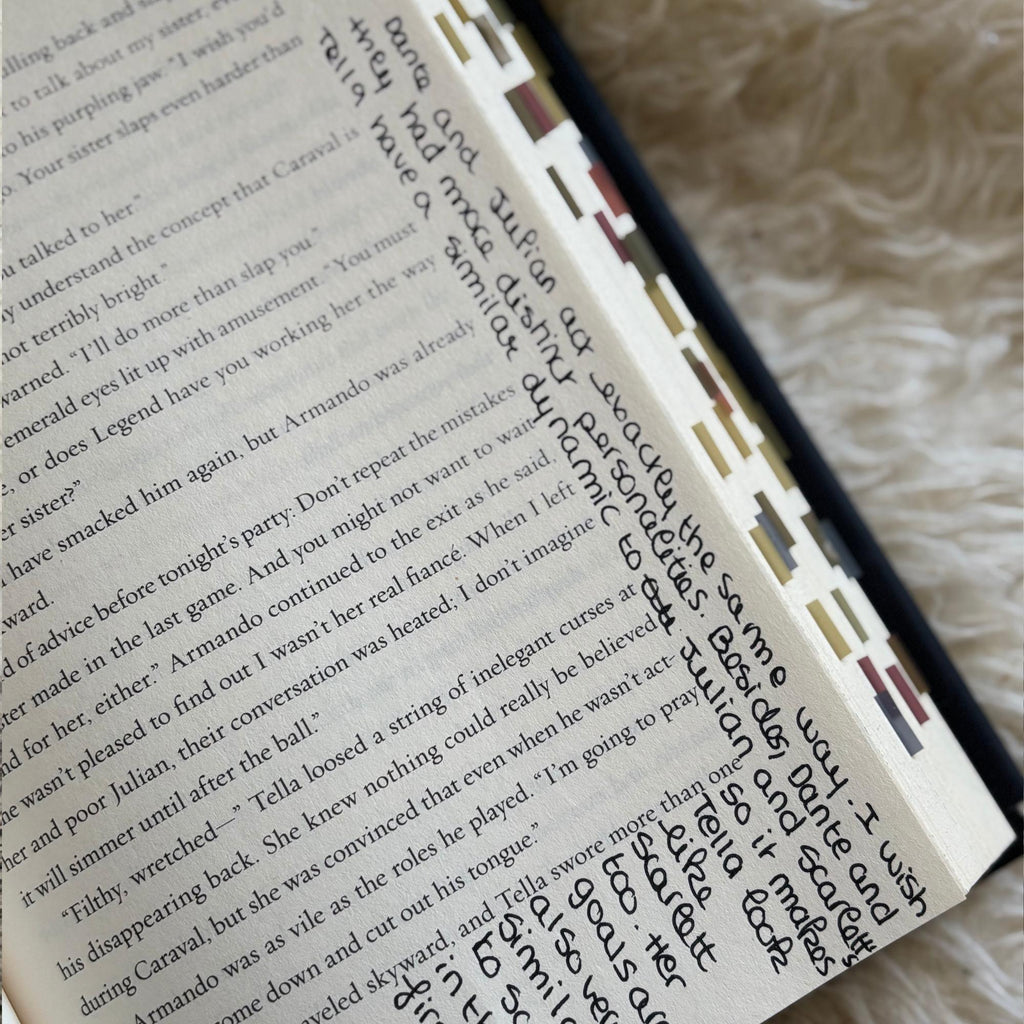 lling back and
to talk about my sister,
o his purpling jaw." I wish you'd
o. Your sister slaps even harder than
u talked to her."
y understand the concept that Caraval is
not terribly bright."
warned. "I'll do more than slap you."
emerald eyes lit up with amusement. "You must
, or does Legend have you working her the way
er sister?"
have smacked him again, but Armando was already
ward.
d of advice before tonight's party: Don't repeat the mistakes
ter made in the last game. And you might not want to wait
nd for her, either." Armando continued to the exit as he said.
he wasn't pleased to find out I wasn't her real fiancé. When I left
her and poor Julian, their conversation was heated; I don't imagine
it will simmer until after the ball."
"Filthy, wretched—" Tella loosed a string of inelegant curses at
his disappearing back. She knew nothing could really be believed
during Caraval, but she was convinced that even when he wasn't act-
Armando was as vile as the roles he played. "I'm going to pray
ome down and cut out his tongue."
aveled skyward, and Tella swore more than one
Dante and Julian act exactley the same way. I wish
they had more distinct personalities. Besides, Dante and
Tella have a similar dynamic to Julian and scarlett's
so it makes
Tella look
like
scarlett
too. Her
goals ar
also ver
simil
to sc
in th
fir